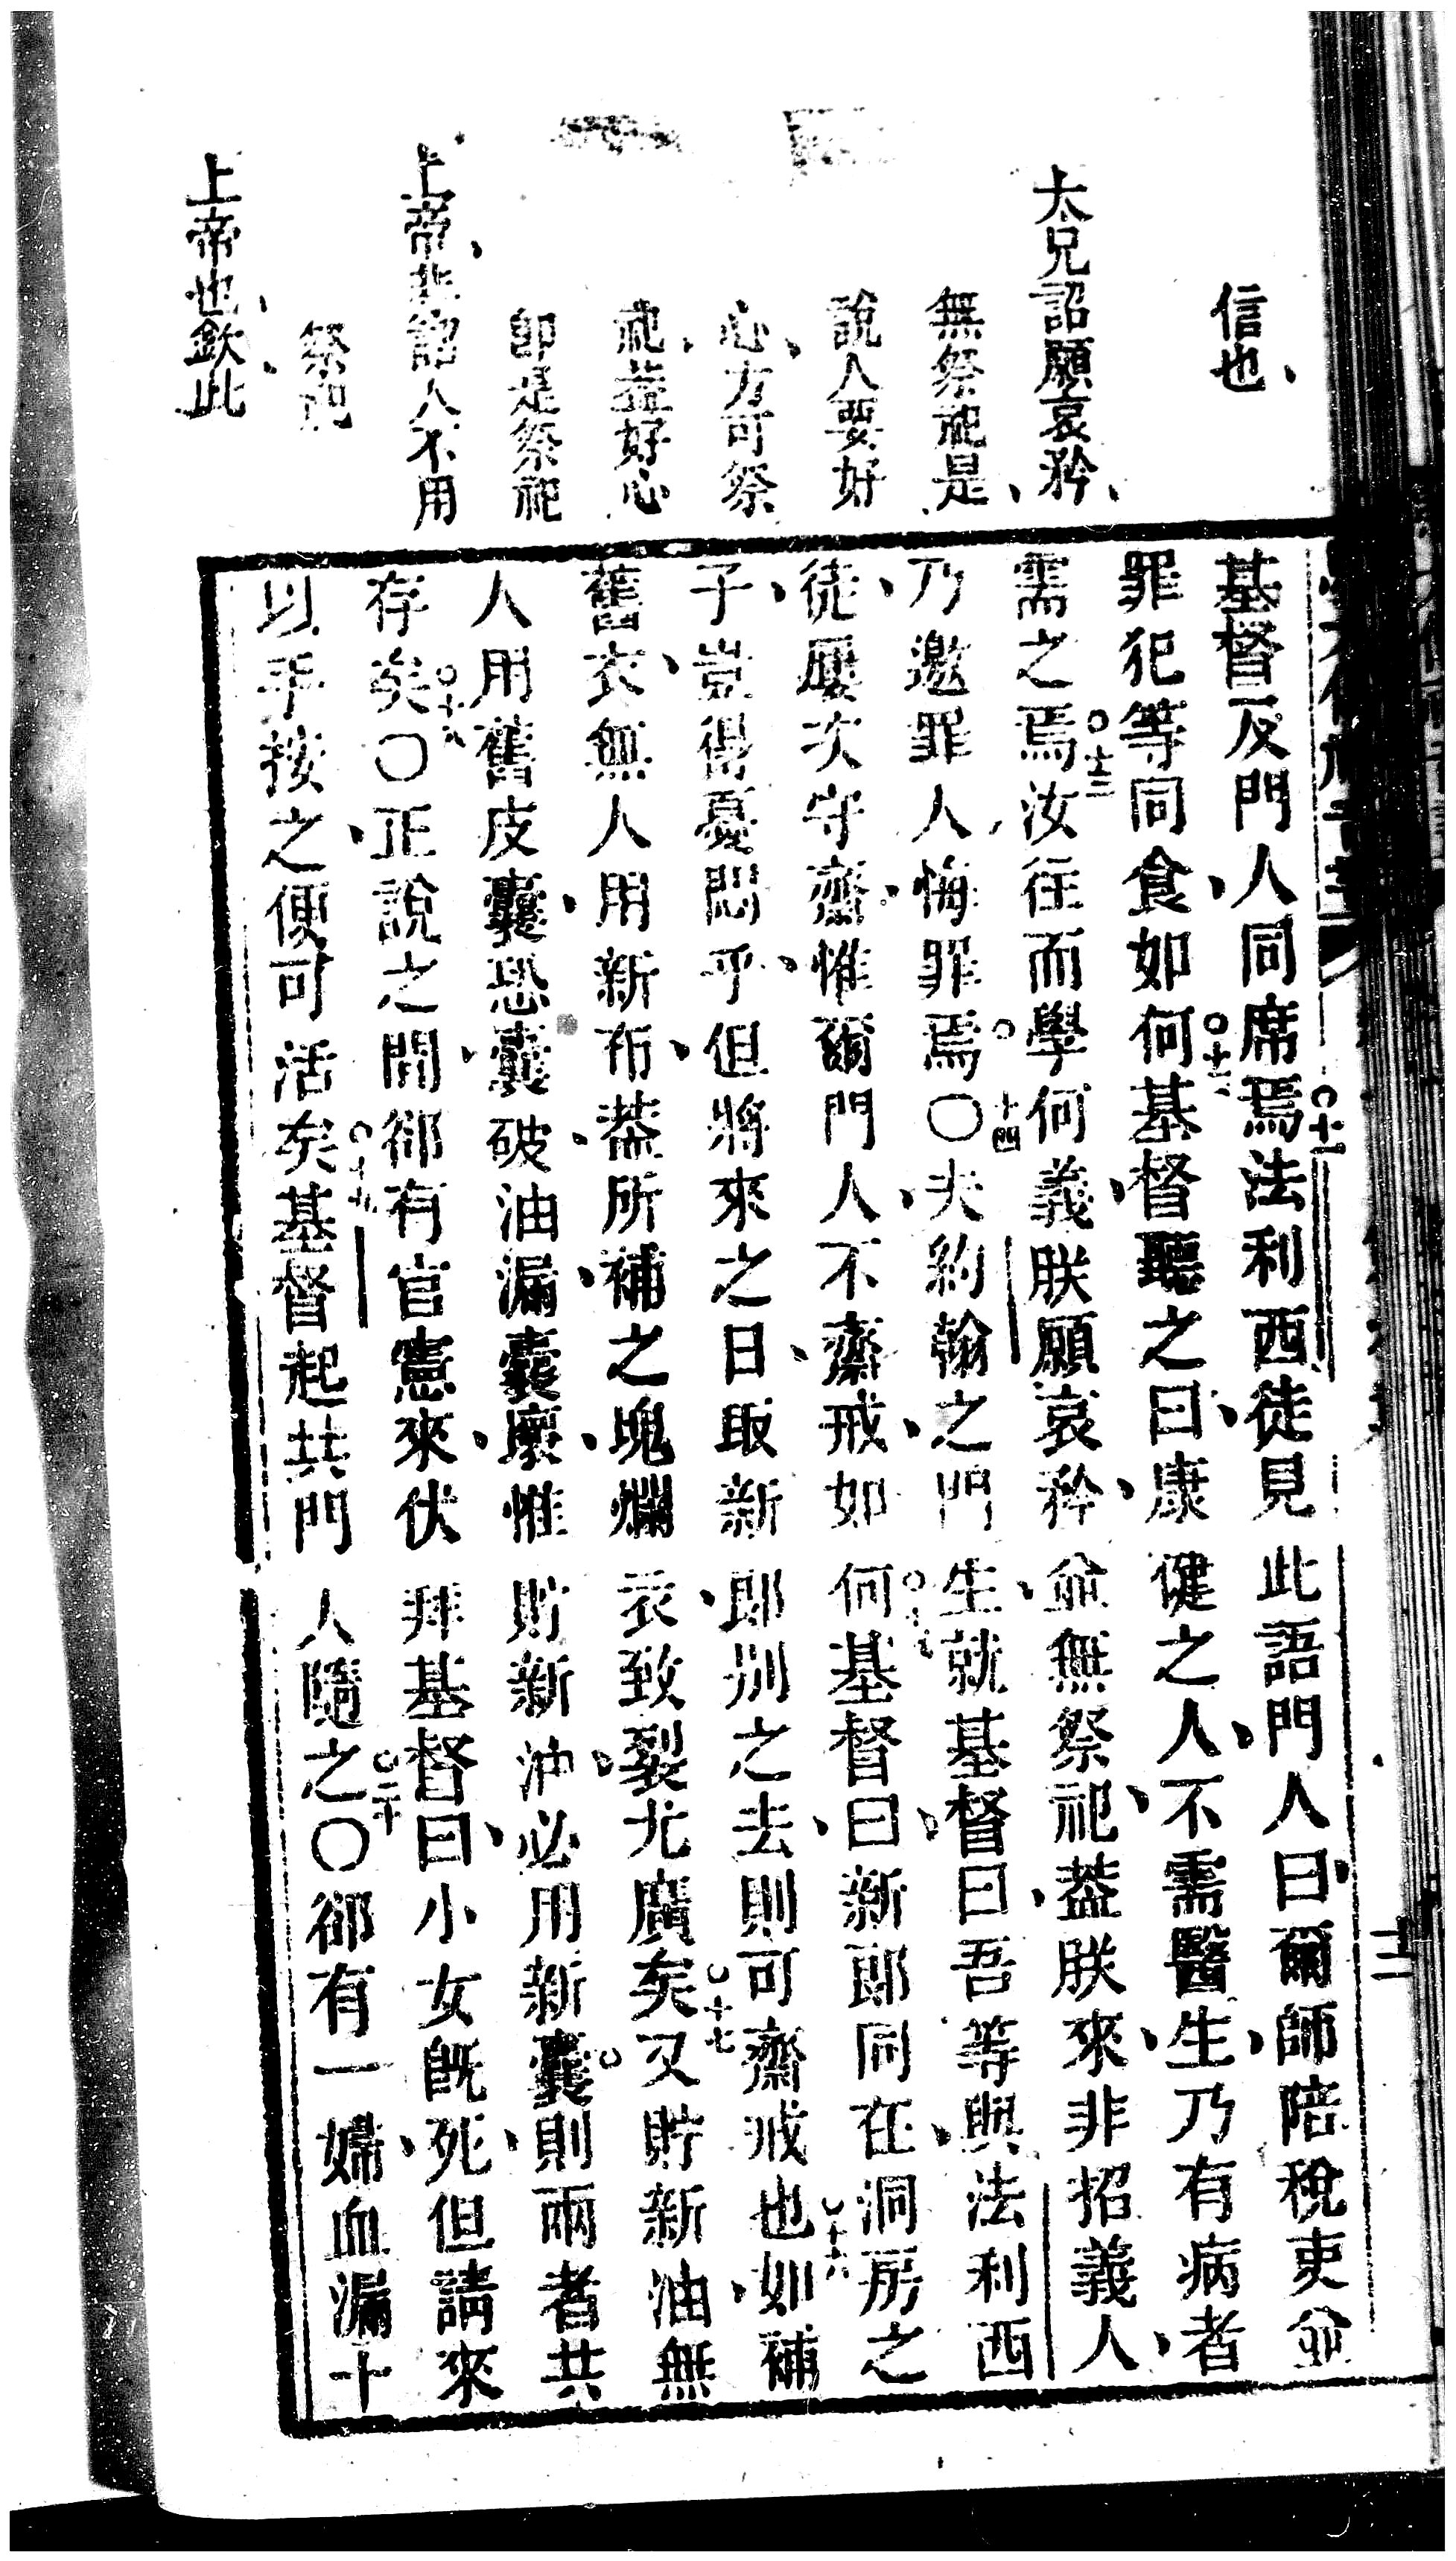 信也
大兄詔願哀矜
無祭祀是
說人要好
心方可祭
祀蓋好心
即是祭祀
上帝非詔人不用
祭祀
上帝也欽此
基督及門人同席焉○十一法利西徒見此語門人曰爾師陪稅吏並
罪犯等同食如何○十二基督聽之曰康健之人人不需醫生乃有病者
需之焉○十三汝往而學何義朕願哀矜並無祭祀蓋朕來非招義人
乃邀罪人悔罪焉○○十四夫約翰之門生就基督曰吾等與法利西
徒屢次守齋惟爾門人不齋戒如何○十五基督曰新郎同在洞房之
子豈得憂悶乎但將來之日取新郎別之去則可齋戒也○十六如補
舊衣無人用新布蓋所補之塊爛衣致裂尤廣矣○十七又貯新油無
人用舊皮囊恐囊破油漏囊壞惟貯新油必用新囊則兩者共
存矣○十八○正說之間卻有官憲來伏拜基督曰小女既死但請來
以手按之便可活矣○十九基督起共門人隨之○二十○卻有一婦血漏十
二